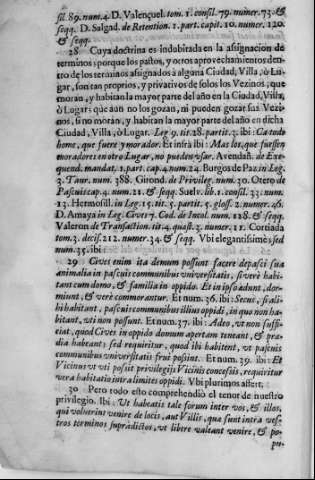 sil. 89. num. 4. D. Valençuel. tom. 1. consil. 79. numer. 73. &
seqq. D. Salgad. de Retention. 1. part. capit. 10. numer. 120.
& seqq.
28 Cuya doctrina es indubitada en la asignacion de
terminos; porque los pastos, y otros aprovechamientos den-
tro de los terminos asignados à alguna Ciudad, Villa, ò Lu-
gar, son tan proprios, y privativos de solos los Vezinos, que
moran, y habitan la mayor parte del año en la Ciudad, Villa,
ò Lugar: que aun no los gozan, ni pueden gozar sus Vezi-
nos, si no moràn, y habitan la mayor parte del año en dicha
Ciudad, Villa, ò Lugar. Leg. 9. tit. 28. partit. 3. ibi: Ca todo
home, que fuere y morador. Et infrà ibi: Mas los, que fuessen
moradores en otro Lugar, no pueden usar. Avendañ. de Exe-
quend. mandat. 1. part. cap. 4. num. 24. Burgos de Paz in Leg.
3. Taur. num. 388. Girond. de Privileg. num. 30. Otero de
Pascuis cap. 4. num. 21. & seqq. Suelv. lib. 1. consil. 33. num.
13. Hermosill. in Leg. 15. tit. 5. partit. 5. gloss. 2. numer. 46.
D. Amaya in Leg. Cives 7. Cod. de Incol. num. 128. & seqq.
Valeron de Transaction. tit. 4. quæst. 3. numer. 11. Cortiada
tom. 3. decis. 212. numer. 34. & seqq. Vbi elegantissimè; sed
num. 35. ibi:
29 Cives enim ita demum possunt facere depasci sua
animalia in pascuis communibus universitatis, si verè habi-
tant cum domo, & familia in oppido. Et in ipso edunt, dor-
miunt, & verè commorantur. Et num. 36. ibi: Secus, si ali-
bi habitant, pascuis communibus illius oppidi, in quo non ha-
bitant, uti non possunt. Et num. 37. ibi: Adeo, ut non suffi-
ciat, quod Cives in oppido domum apertam teneant, & præ-
dia habeant; sed requiritur, quod ibi habitent, ut pascuis
communibus vniversitatis frui possint. Et num. 39. ibi: Et
Vicinus ut uti possit privilegijs Vicinis concessis, requiritur
vera habitatio intra limites oppidi. Vbi plurimos affert.
30 Pero todo esto comprehendiò el tenor de nuestro
privilegio. Ibi: Ut habeatis tale forum inter vos, & illos,
qui voluerint venire de locis, aut Villis, quæ sunt intra ves-
tros terminos supradictos, ut libere valeant venire, & po-
pu-